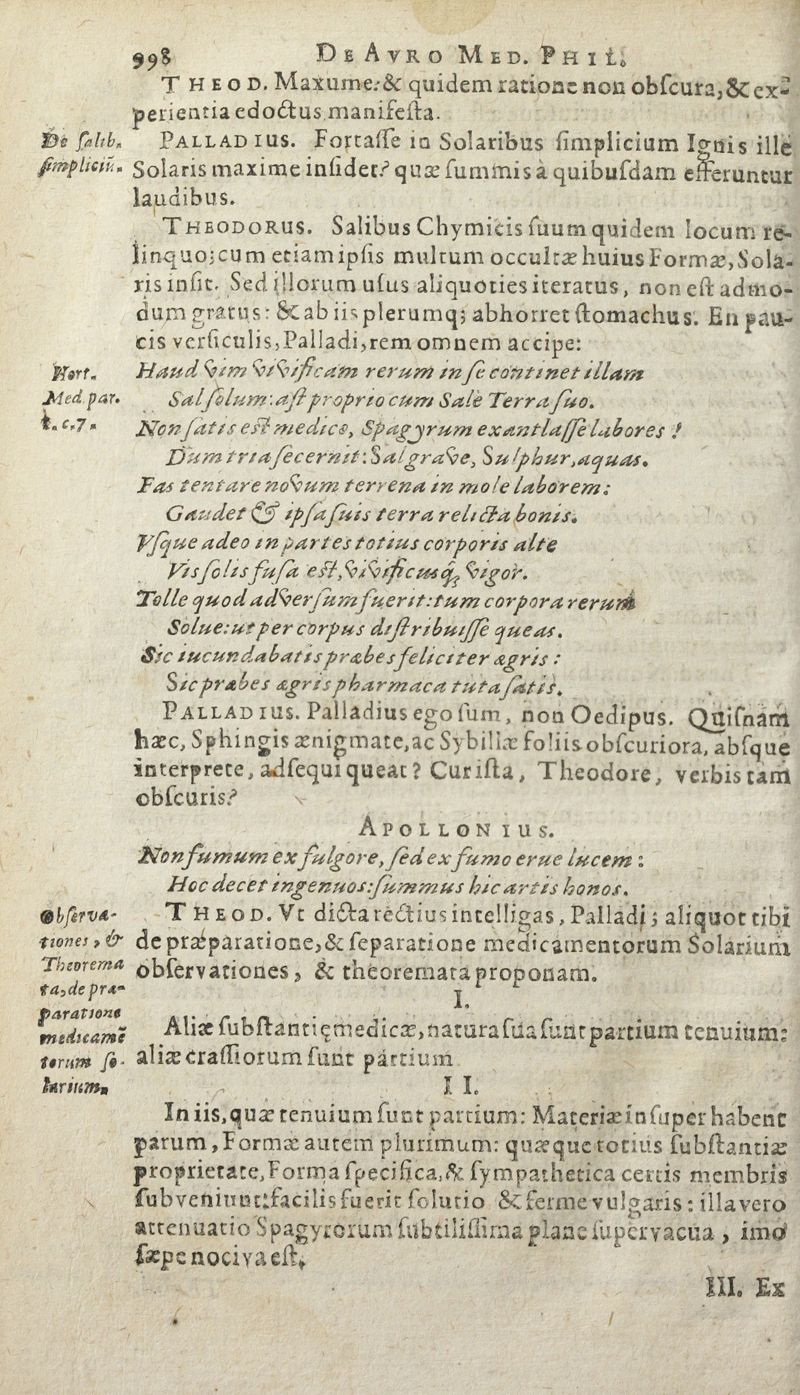 998 DE AVRO MED. PHIL.
THEOD. Maxume: & quidem ratione non obſcura, & ex-
perientia edoctus manifeſta.
De ſalib.
ſimpliciũ.
PALLADIUS. Fortaſſe in Solaribus ſimplicium Ignis ille
Solaris maxime inſidet? quæ ſummis à quibuſdam efferuntur
laudibus.
THEODORUS. Salibus Chymicis ſuum quidem locum re-
linquo; cum etiam ipſis multum occultæ huius Formæ, Sola-
ris inſit. Sed illorum uſus aliquoties iteratus, non eſt admo-
dum gratus: & ab iis plerumq; abhorret ſtomachus. En pau-
cis verſiculis, Palladi, rem omnem accipe:
Mort.
Med. par.
1. c. 7.
Haud vim vivificam rerum in ſe continet illam
Sal ſolum: aſt proprio cum Sale Terra ſuo.
Non ſatis eſt medico, Spagyrum exantlaſſe labores!
Dum tria ſecernit: Sal grave, Sulphur, aquas.
Fas tentare novum terrena in mole laborem:
Gaudet & ipſa ſuis terra relicta bonis.
Vſque adeo in partes totius corporis alte
Vis ſolis fuſa eſt, vivificusq; vigor.
Tolle quod adverſum fuerit: tum corpora rerum
Solue: ut per corpus diſtribuiſſe queas.
Sic iucunda batis præbes feliciter ægris:
Sic præbes ægris pharmaca tuta ſatis.
PALLADIUS. Palladius ego ſum, non Oedipus. Quiſnam
hæc, Sphingis ænigmate, ac Sybillæ foliis obſcuriora, abſque
interprete, adſequi queat? Cur iſta, Theodore, verbis tam
obſcuris?
APOLLONIUS.
Non fumum ex fulgore, ſed ex fumo erue lucem:
Hoc decet ingenuos: ſummus hic artis honos.
Obſerva-
tiones, &
Theorema
ta, de præ-
paratione
medicamē
torum ſo-
larium.
THEOD. Vt dicta rectius intelligas, Palladi; aliquot tibi
de præparatione, & ſeparatione medicamentorum Solarium
obſervationes, & theoremata proponam.
I.
Aliæ ſubſtantię medicæ, natura ſua ſunt partium tenuium:
aliæ craſſiorum ſunt partium
II.
In iis, quæ tenuium ſunt partium: Materiæ inſuper habent
parum, Formæ autem plurimum: quæque totius ſubſtantiæ
proprietate, Forma ſpecifica, & ſympathetica certis membris
ſubveniunt: facilis fuerit ſolutio & ferme vulgaris: illa vero
attenuatio Spagyrorum ſubtiliſſima plane ſupervacua, imo
ſæpe nociva eſt.
III. Ex